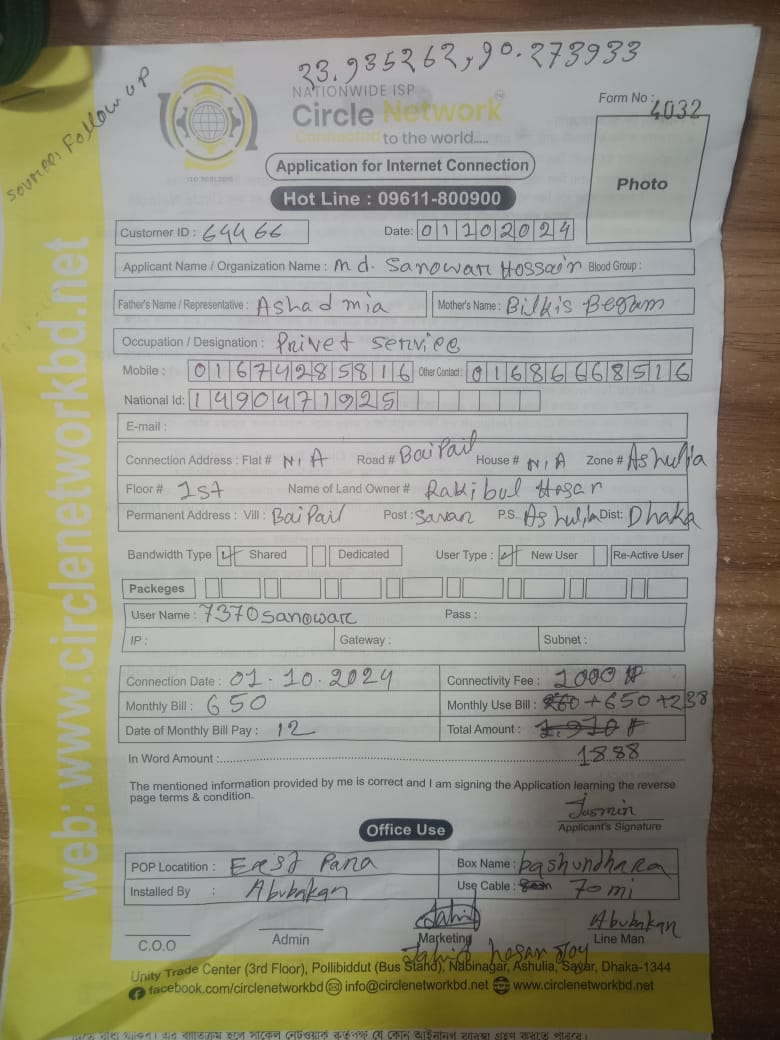 23.935262, 90.273933
Source: Follow up
NATIONWIDE ISP
Circle Network
Connected to the world.....
ISO 9001:2015
Form No : 4032
Application for Internet Connection
Photo
Hot Line : 09611-800900
Customer ID : 64466
Date: 01102024
Applicant Name / Organization Name : Md. Sanowar Hossain Blood Group :
Father's Name / Representative : Ashad mia
Mother's Name : Bilkis Begum
Occupation / Designation : Privet service
Mobile : 01674285816 Other Contact : 01686668516
National Id: 1490471925
E-mail :
Connection Address : Flat # N/A Road # BaiPail House # N/A Zone # Ashulia
Floor # 1st Name of Land Owner # Rakibul Hasan
Permanent Address : Vill : BaiPail Post : Savar P.S. Ashulia Dist: Dhaka
Bandwidth Type Shared Dedicated User Type : New User Re-Active User
Packeges
User Name : 7370sanowar Pass :
IP : Gateway : Subnet :
Connection Date : 01.10.2024 Connectivity Fee : 1000
Monthly Bill : 650 Monthly Use Bill : +650+238
Date of Monthly Bill Pay : 12 Total Amount : 1.910
1888
In Word Amount :
The mentioned information provided by me is correct and I am signing the Application learning the reverse
page terms & condition.
Jasmin
Applicant's Signature
Office Use
POP Locatition : East Para Box Name : bashundhara
Installed By : Abubakar Use Cable : 70 mi
Jahid Abubakar
C.O.O Admin Marketing Line Man
Jahid hasan Joy
Unity Trade Center (3rd Floor), Pollibiddut (Bus Stand), Nabinagar, Ashulia, Savar, Dhaka-1344
facebook.com/circlenetworkbd info@circlenetworkbd.net www.circlenetworkbd.net
web: www.circlenetworkbd.net